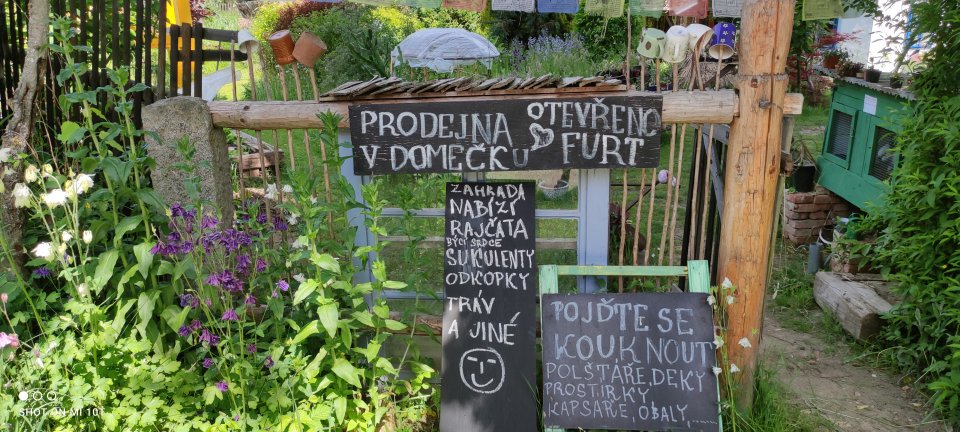 PRODEJNA OTEVŘENO
V DOMEČKU FURT
ZAHRADA
NABÍZÍ
RAJČATA
BÝČÍ SRDCE
SUKULENTY
ODKOPKY
TRÁV
A JINÉ
POJĎTE SE
KOUKNOUT
POLŠTÁŘE, DEKY
PROSTÍRKY
KAPSÁŘE, OBALY,.....
SHOT ON MI 10T